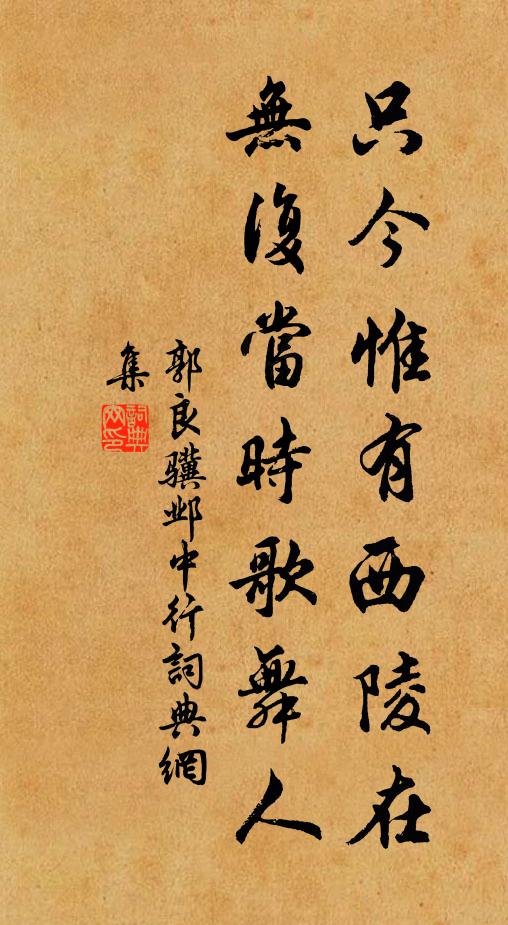 只今惟有西陵在
無復當時歌舞人
郭良骥邺中行詞典網
集
詞典
网印